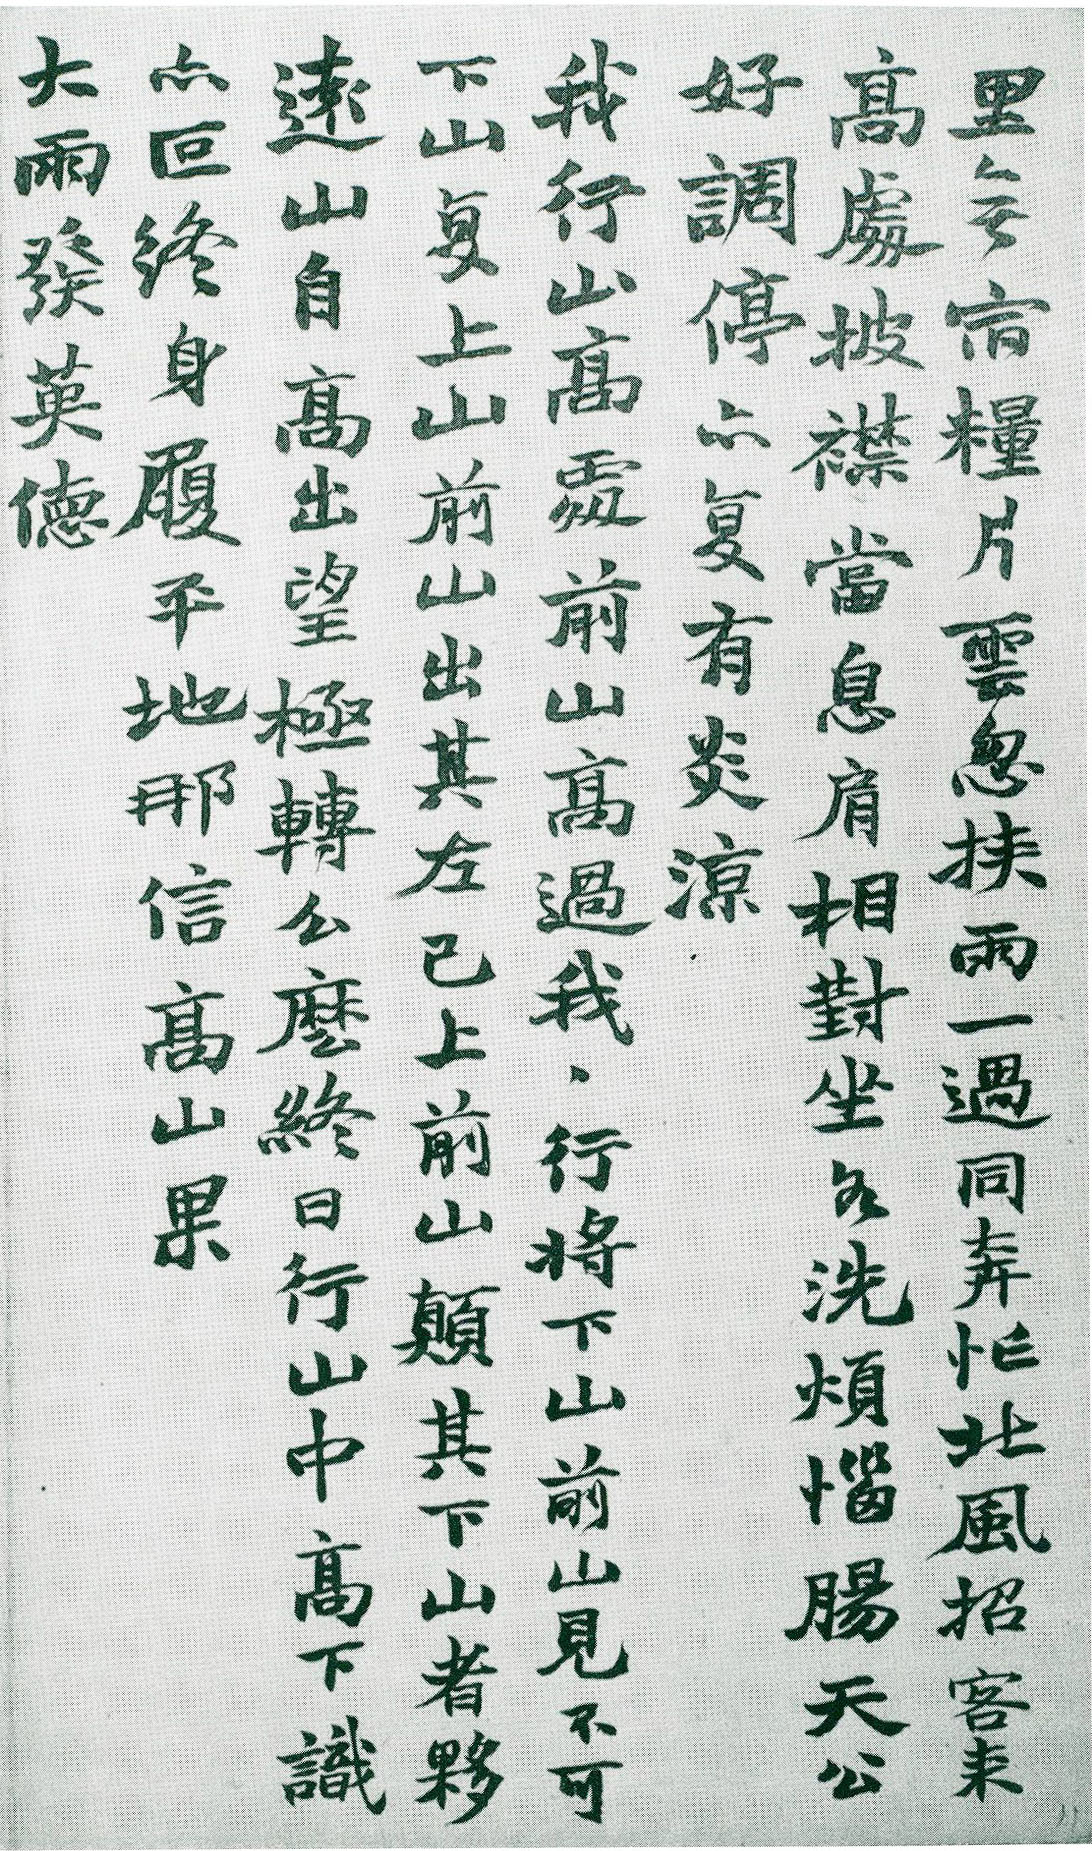 里糧片雲忽挾雨一過同奔忙北風招客來
高處披襟當息肩相對坐各洗煩惱腸天公
好調停亦复有炎涼
我行山高處前山高過我、行將下山前山見不可
下山复上山前山出其左已上前山顛其下山者夥
遠山自高出望極轉么麼終日行山中高下識
亦叵終身履平地那信高山果
大雨發英德